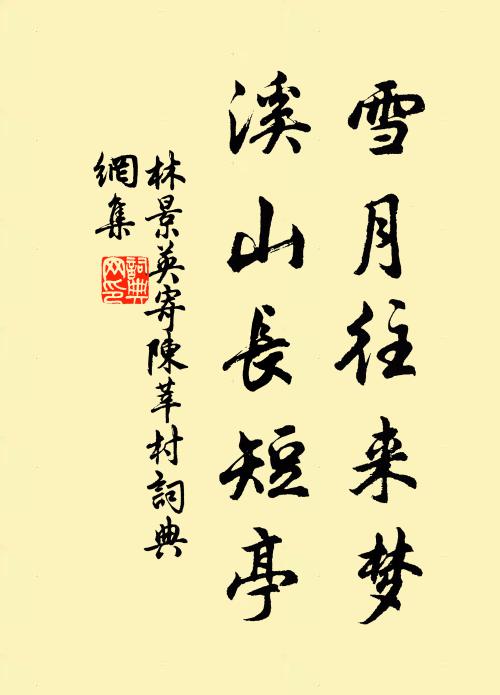 雪月往来梦
溪山長短亭
林景英寄陳莘村詞典
網集
詞典网印